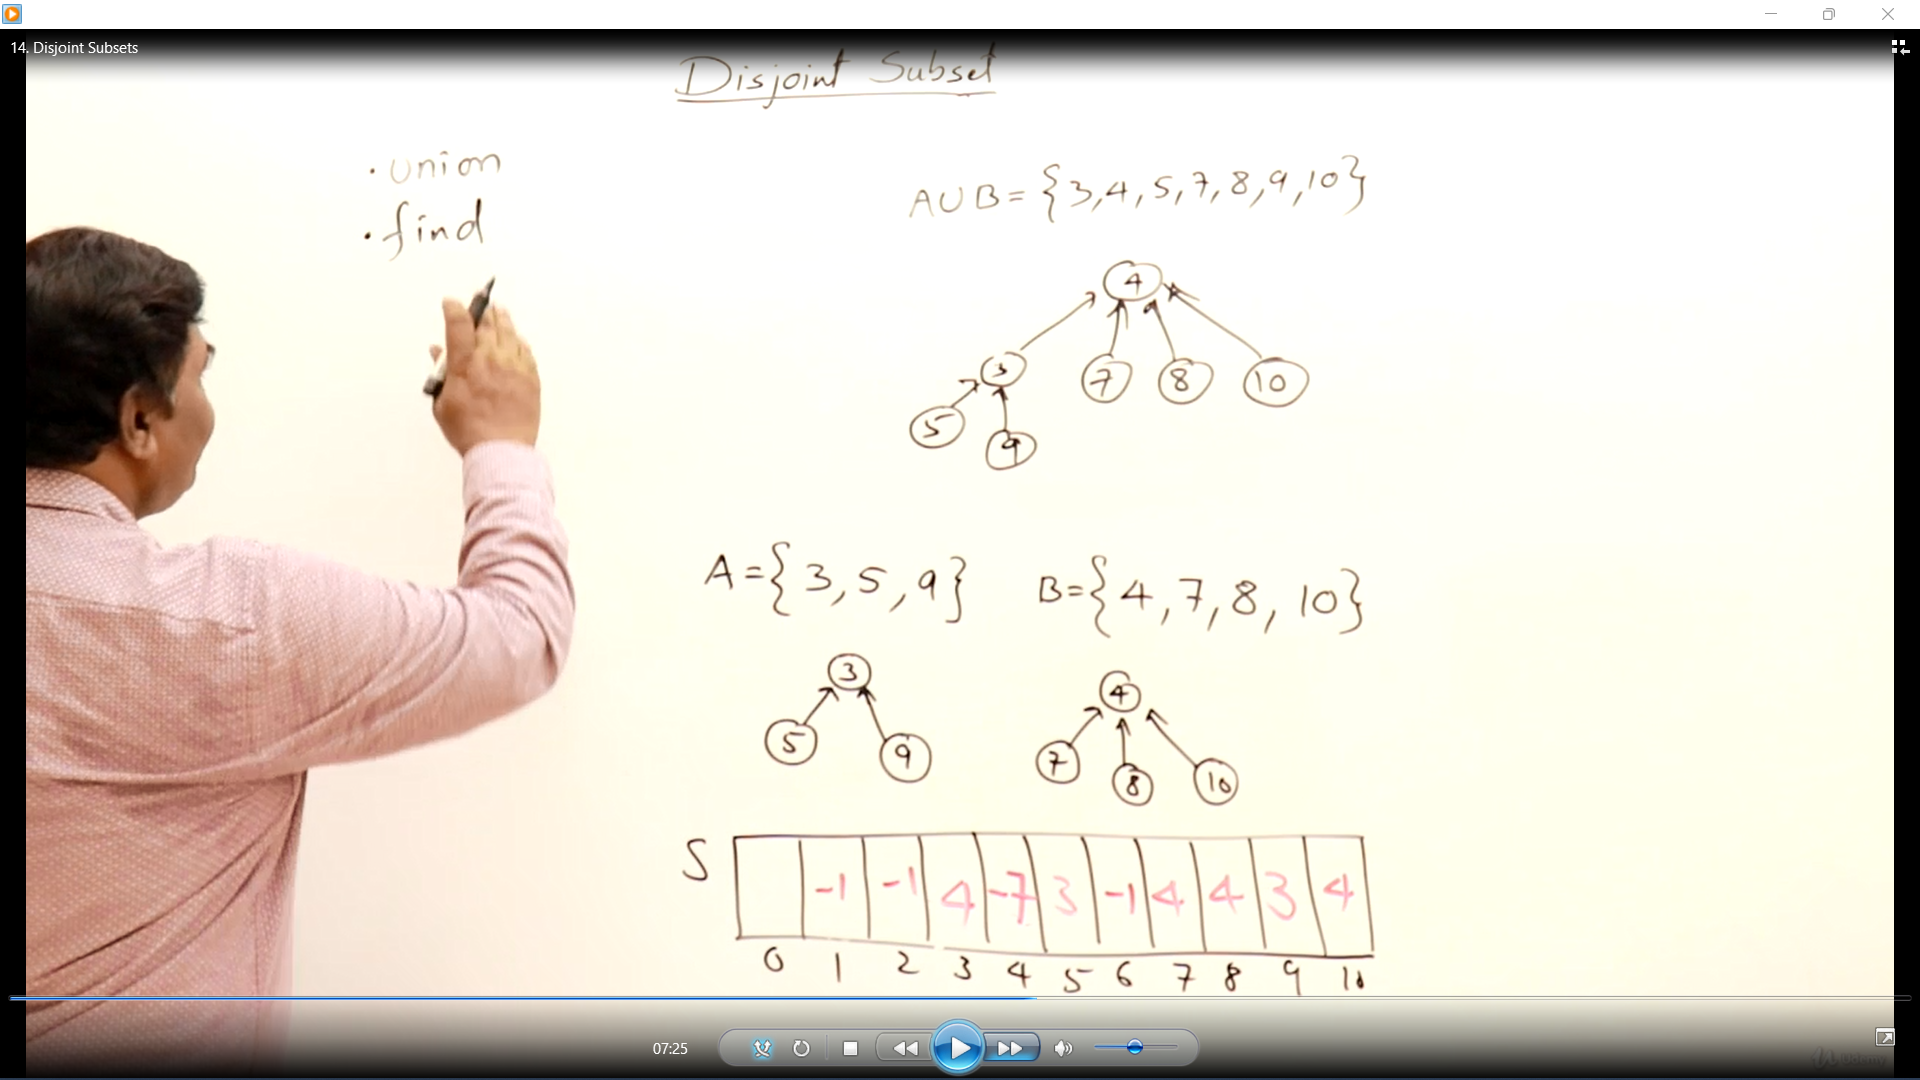 14. Disjoint Subsets
Disjoint Subset
. union
. find
A ∪ B = {3,4,5,7,8,9,10}
4
3 7 8 10
5 9
A={3,5,9} B={4,7,8,10}
3 4
5 9 7 8 10
S -1 -1 4 -7 3 -1 4 4 3 4
0 1 2 3 4 5 6 7 8 9 10
07:25